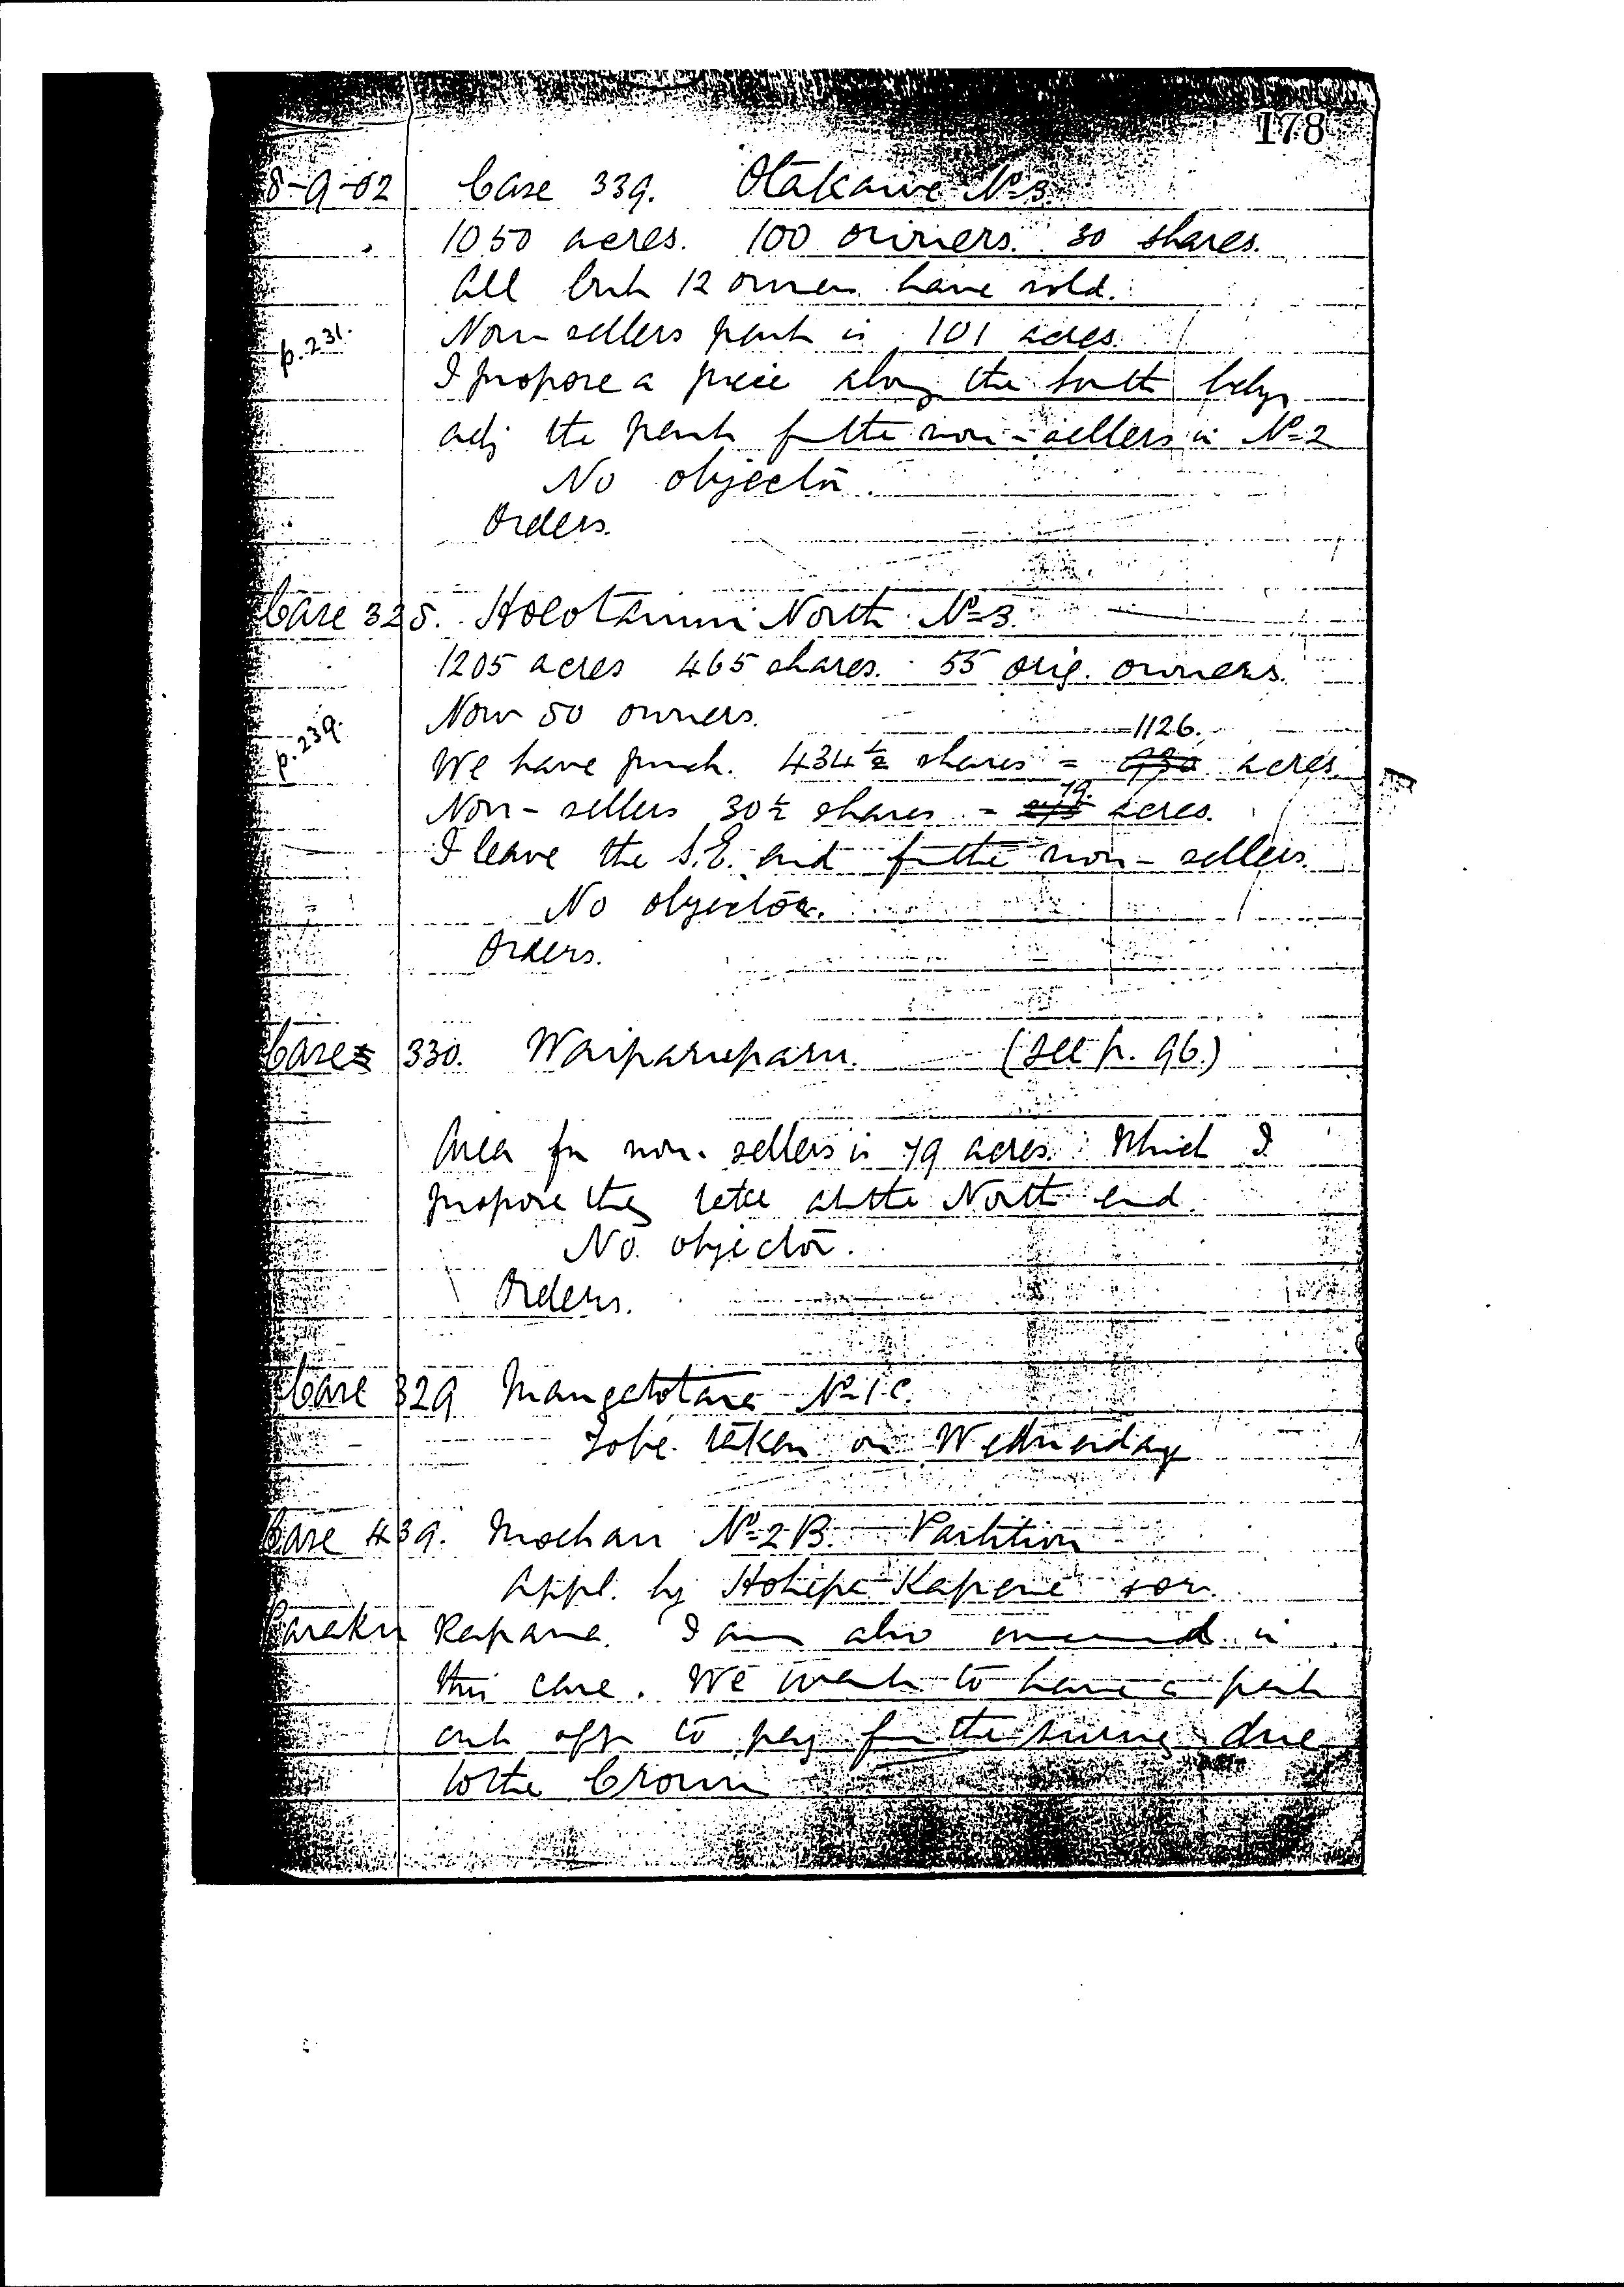 178
8-9-02 Case 339. Otakawe No 3.
1050 acres. 100 owners. 30 shares.
All but 12 owners have sold.
p. 231. Non sellers part is 101 acres.
I propose a piece along the South bdy
adj the part for the non-sellers in No 2
No objector.
Orders.
Case 325. North No 3.
1205 acres 465 shares. 55 orig. owners.
Now 50 owners.
p. 239. 1126.
We have purch. 434½ shares = acres.
79.
Non-sellers 30½ shares = acres.
I leave the S.E. end for the non-sellers.
No objector.
Orders.
Case 330. Waiparuparu. (See p. 96.)
Area for non-sellers is 79 acres. Which I
propose they take at the North end.
No objector.
Orders.
Case 329 No 1C.
To be taken on Wednesday
Case 439. No 2B. Partition
Appl. by Hohepa Kapene
I am also in
this case. We want to have a part
cut off to pay for the survey due
to the Crown